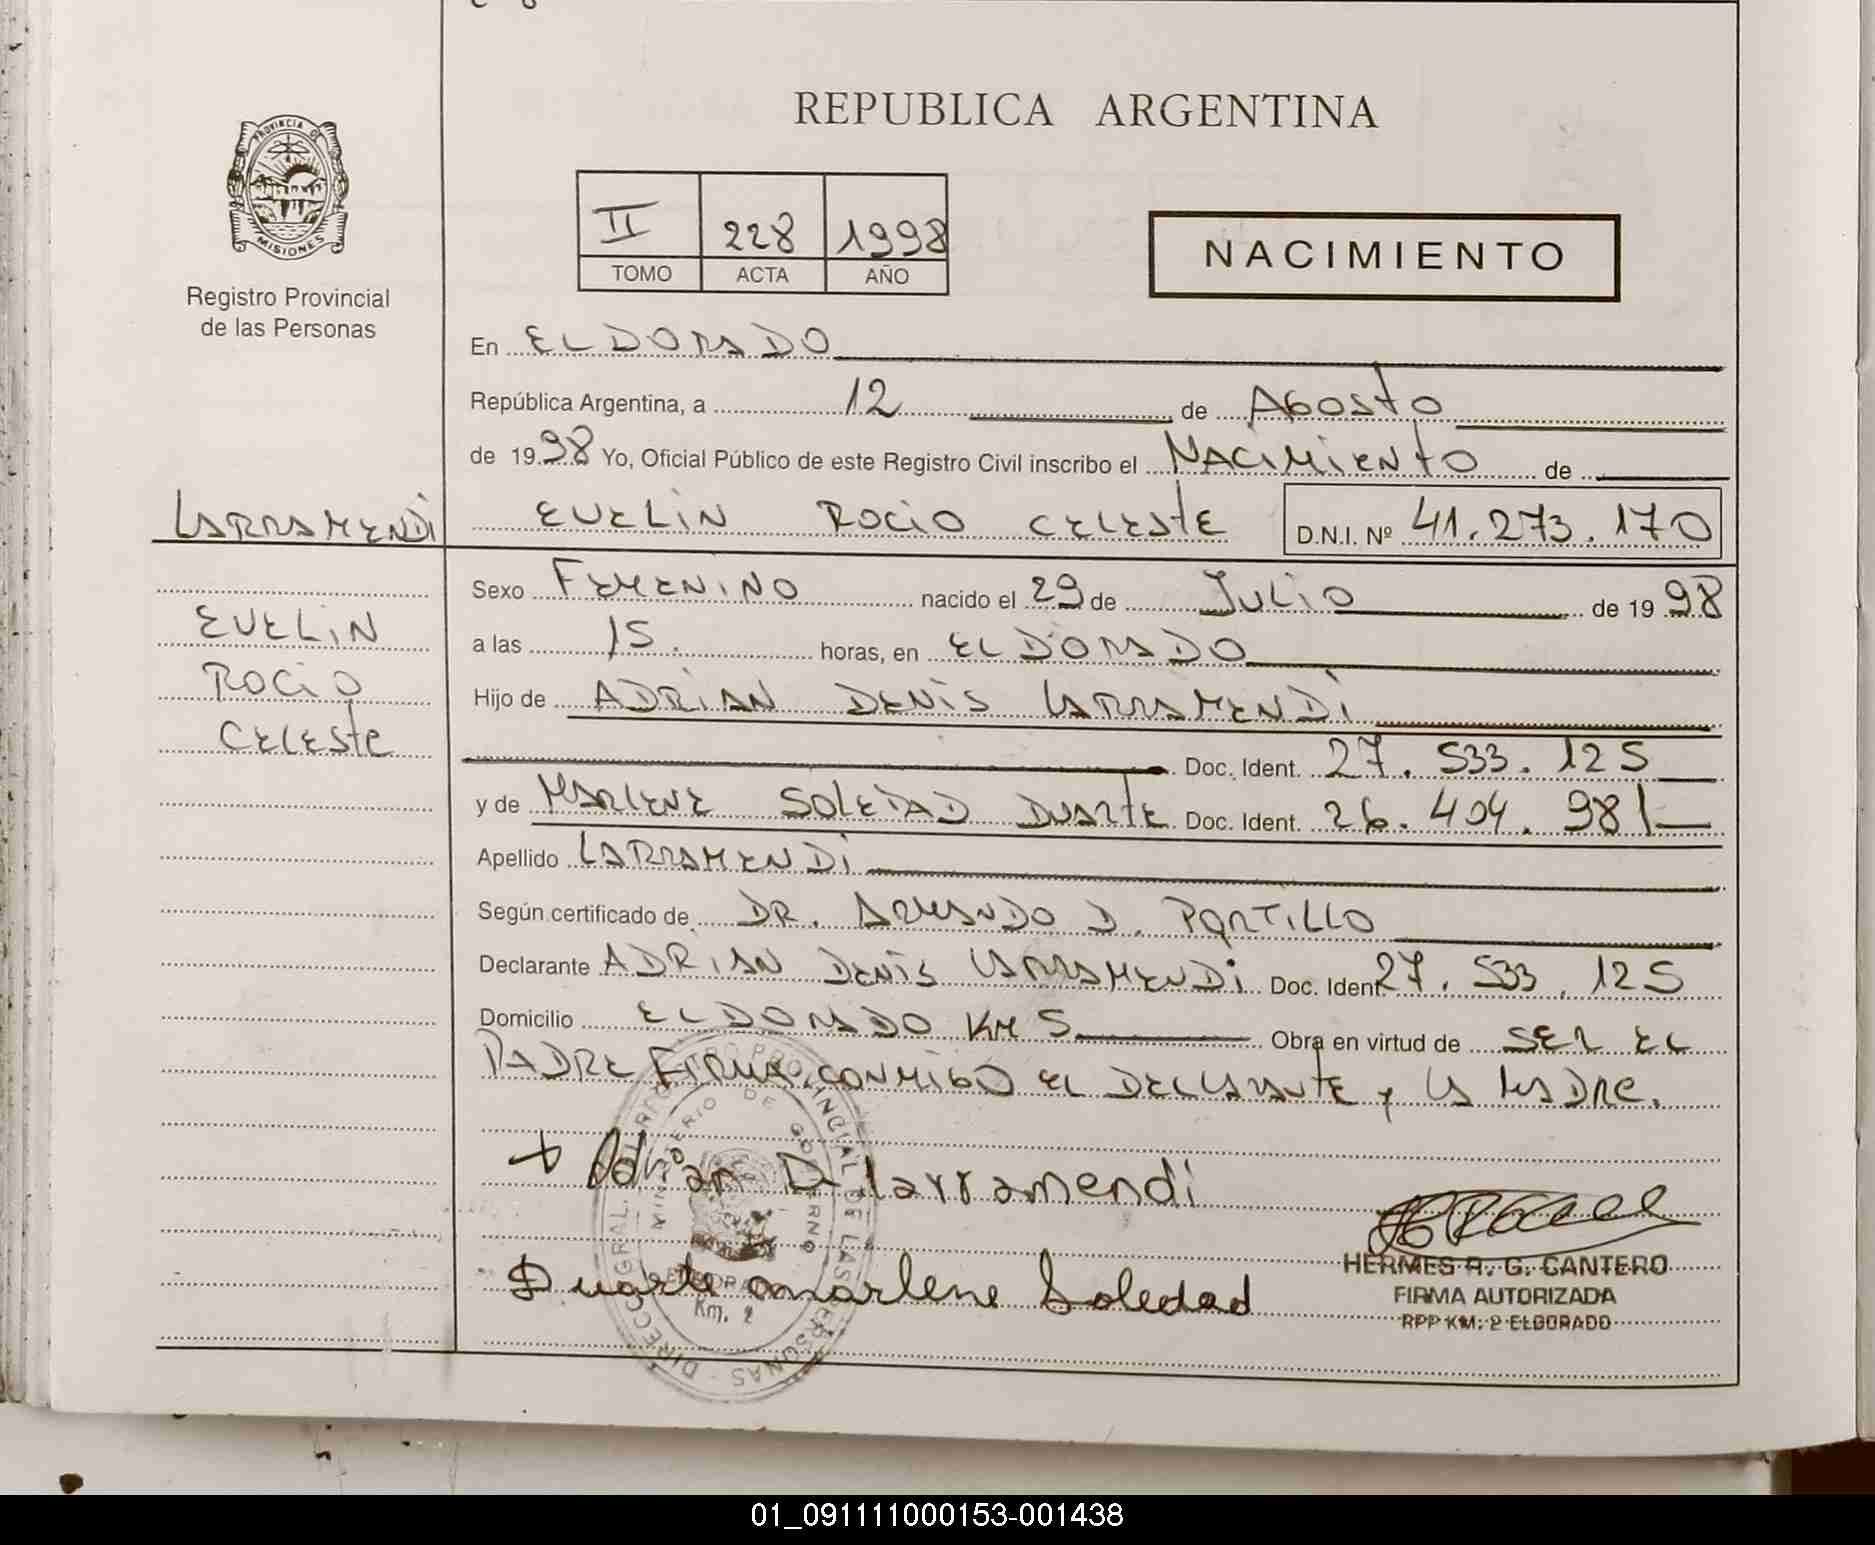 REPUBLICA ARGENTINA
PROVINCIA DE
MISIONES
Registro Provincial
de las Personas
II 228 1998
TOMO ACTA AÑO
NACIMIENTO
En ELDORADO
República Argentina, a 12 de AGOSTO
de 1998 Yo, Oficial Público de este Registro Civil inscribo el NACIMIENTO de
LARRAMENDI
EVELIN ROCIO CELESTE D.N.I. Nº 41.273.170
EVELIN
ROCIO
CELESTE
Sexo FEMENINO nacido el 29 de JULIO de 1998
a las 15. horas, en ELDORADO
Hijo de ADRIAN DENIS LARRAMENDI
Doc. Ident. 27.533.125
y de MARLENE SOLEDAD DUARTE Doc. Ident. 26.404.981
Apellido LARRAMENDI
Según certificado de DR. ARMANDO D. PORTILLO
Declarante ADRIAN DENIS LARRAMENDI Doc. Ident. 27.533.125
Domicilio ELDORADO KM 5 Obra en virtud de SER EL
PADRE FIRMA CONMIGO EL DECLARANTE y LA MADRE.
+ Adrian D. larramendi
Duarte marlene Soledad
HERMES R. G. CANTERO
FIRMA AUTORIZADA
RPP KM. 2 ELDORADO
DIRECC. GRAL. REGISTRO PROVINCIAL DE LAS PERSONAS
MINISTERIO DE GOBIERNO
ELDORADO
Km. 2
01_091111000153-001438